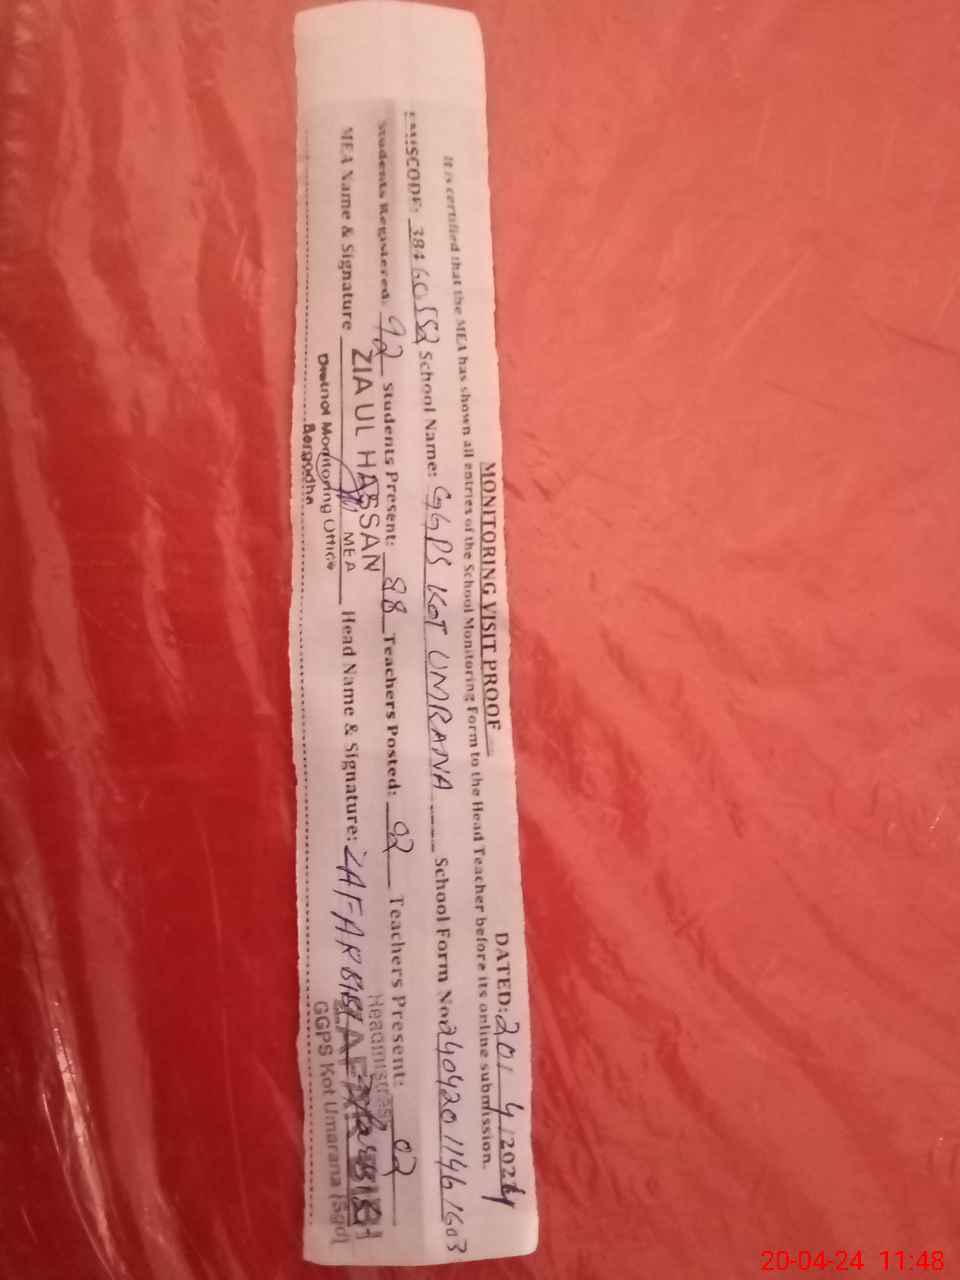 MONITORING VISIT PROOF
DATED: 20/4/2024
It is certified that the MEA has shown all entries of the School Monitoring Form to the Head Teacher before its online submission.
EMISCODE: School Name: GGPS KOT UMRANA School Form No. 24042011461603
Students Registered: 92 Students Present: 88 Teachers Posted: 02 Teachers Present: 02
MEA Name & Signature ZIA UL HASSAN MEA Head Name & Signature: ZAFAR BIBI
District Monitoring Office
Sargodha
Headmistress
ZAFAR BIBI
GGPS Kot Umarana (Sgd)
20-04-24 11:48